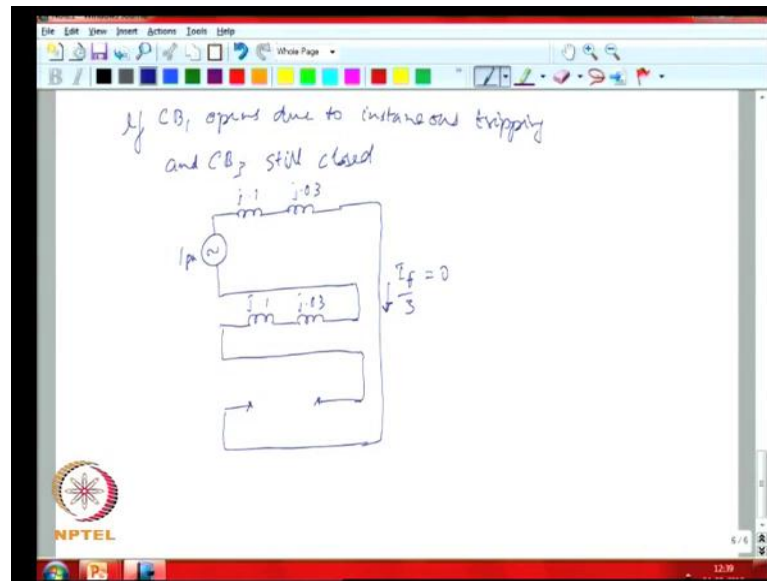 File Edit View Insert Actions Tools Help
Whole Page
B I
If CB1 opens due to instaneous tripping
and CB3 still closed
j.1 j.03
1pu
j.1 j.03
If/3 = 0
NPTEL
6/6
12:39